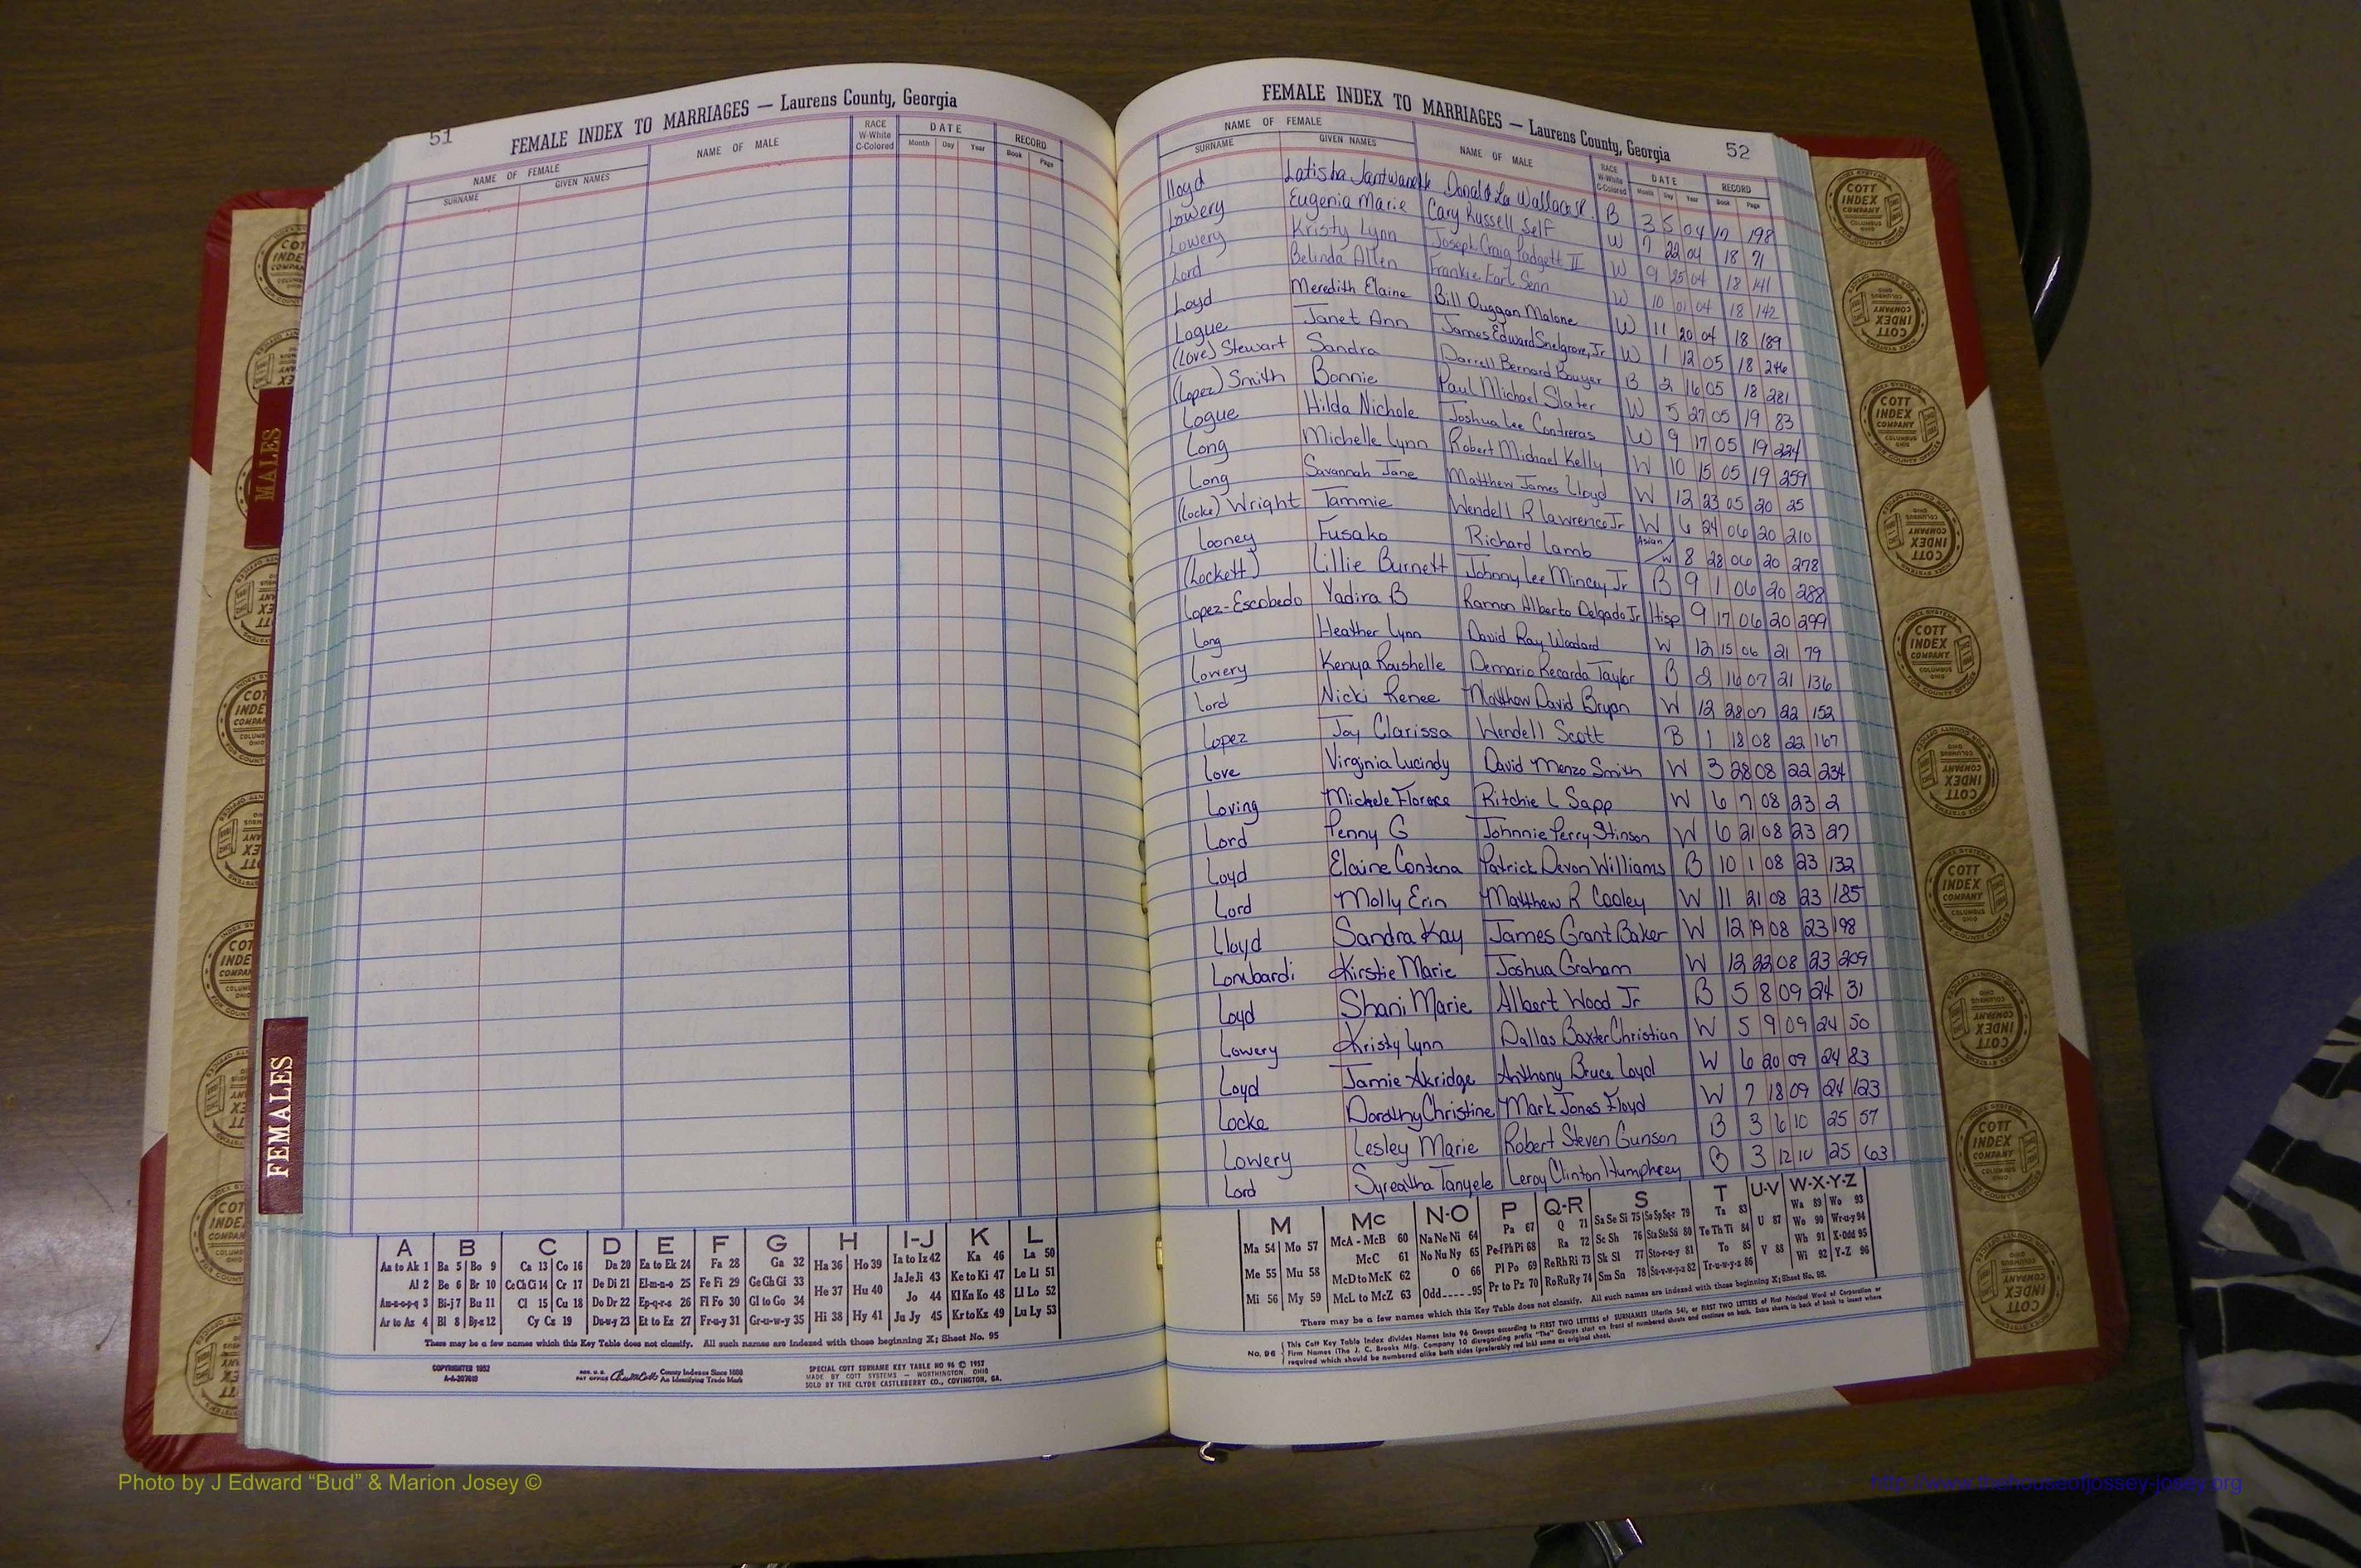 51
FEMALE INDEX TO MARRIAGES — Laurens County, Georgia
NAME OF FEMALE
SURNAME GIVEN NAMES
NAME OF MALE
RACE W-White C-Colored
DATE
Month Day Year
RECORD
Book Page
FEMALE INDEX TO MARRIAGES — Laurens County, Georgia
52
NAME OF FEMALE
SURNAME GIVEN NAMES
NAME OF MALE
RACE W-White C-Colored
DATE
Month Day Year
RECORD
Book Page
Lloyd Latisha Donald La Wallace Jr. B 3 5 04 17 198
Lowery Eugenia Marie Cary Russell Self W 7 22 04 18 71
Lowery Kristy Lynn Joseph Craig Padgett II W 9 25 04 18 141
Lord Belinda Allen Frankie Earl Senn W 10 01 04 18 142
Loyd Meredith Elaine Bill Duggan Malone W 11 20 04 18 189
Logue Janet Ann James Edward Snelgrove, Jr W 1 12 05 18 246
(Love) Stewart Sandra Darrell Bernard Bouyer B 2 16 05 18 281
(Lopez) Smith Bonnie Paul Michael Slater W 5 27 05 19 83
Logue Hilda Nichole Joshua Lee Contreras W 9 17 05 19 224
Long Michelle Lynn Robert Michael Kelly W 10 15 05 19 259
Long Savannah Jane Matthew James Lloyd W 12 23 05 20 25
(Locke) Wright Tammie Wendell R Lawrence Jr W 6 24 06 20 210
Looney Fusako Richard Lamb Asian/W 8 28 06 20 278
(Lockett) Lillie Burnett Johnny Lee Mincey Jr B 9 1 06 20 288
Lopez-Escobedo Yadira B Ramon Alberto Delgado Jr Hisp 9 17 06 20 299
Long Heather Lynn David Ray Woodard W 12 15 06 21 79
Lowery Kenya Roushelle Demario Recarda Taylor B 2 16 07 21 136
Lord Nicki Renee Matthew David Bryan W 12 28 07 22 152
Lopez Joy Clarissa Wendell Scott B 1 18 08 22 167
Love Virginia Lucindy David Menzo Smith W 3 28 08 22 234
Loving Michele Florece Ritchie L Sapp W 6 7 08 23 2
Lord Penny G Johnnie Perry Stinson W 6 21 08 23 27
Loyd Elaine Contena Patrick Devon Williams B 10 1 08 23 132
Lord Molly Erin Matthew R Cooley W 11 21 08 23 185
Lloyd Sandra Kay James Grant Baker W 12 19 08 23 198
Lombardi Kirstie Marie Joshua Graham W 12 22 08 23 209
Loyd Shani Marie Albert Wood Jr B 5 8 09 24 31
Lowery Kristy Lynn Dallas Baxter Christian W 5 9 09 24 50
Loyd Jamie Akridge Anthony Bruce Loyd W 6 20 09 24 83
Locke Dorothy Christine Mark Jones Floyd W 7 18 09 24 123
Lowery Lesley Marie Robert Steven Gunson B 3 6 10 25 57
Lord Syreatha Tanyele Leroy Clinton Humphrey B 3 12 10 25 63
MALES
FEMALES
A B C D E F G H I-J K L
Aa to Ak 1 Ba 5 Bo 9 Ca 13 Co 16 Da 20 Ea to Ek 24 Fa 28 Ga 32 Ha 36 Ho 39 Ia to Iz 42 Ka 46 La 50
Al 2 Be 6 Br 10 Ce Ch Ci 14 Cr 17 De Di 21 El-m-n-o 25 Fe Fi 29 Ge Gh Gi 33 He 37 Hu 40 Ja Je Ji 43 Ke to Ki 47 Le Li 51
Am-n-o-p-q 3 Bi-j 7 Bu 11 Cl 15 Cu 18 Do Dr 22 Ep-q-r-s 26 Fl Fo 30 Gl to Go 34 Hi 38 Hy 41 Jo 44 Kl Kn Ko 48 Ll Lo 52
Ar to Az 4 Bl 8 By-z 12 Cy Cz 19 Du-w-y 23 Et to Ez 27 Fr-u-y 31 Gr-u-w-y 35 Ju Jy 45 Kr to Kz 49 Lu Ly 53
There may be a few names which this Key Table does not classify. All such names are indexed with those beginning X; Sheet No. 95
COPYRIGHTED 1952
County Indexes Since 1888
An Identifying Trade Mark
SPECIAL COTT SURNAME KEY TABLE NO 96 © 1952
MADE BY COTT SYSTEMS — WORTHINGTON, OHIO
SOLD BY THE CLYDE CASTLEBERRY CO., COVINGTON, GA.
M Mc N-O P Q-R S T U-V W-X-Y-Z
Ma 54 Mo 57 McA - McB 60 Na Ne Ni 64 Pa 67 Q 71 Sa Se Si 75 So Sp Sq-r 79 Ta 83 U 87 Wa 89 Wo 93
Me 55 Mu 58 McC 61 No Nu Ny 65 Pe-f Ph Pi 68 Ra 72 Sc Sh 76 Sta Ste Sti 80 Te Th Ti 84 V 88 We 90 Wr-u-y 94
Mi 56 My 59 McD to McK 62 O 66 Pl Po 69 Re Rh Ri 73 Sk Sl 77 Sto-r-u-y 81 To 85 Wh 91 X-Odd 95
McL to McZ 63 Odd 95 Pr to Pz 70 Ro Ru Ry 74 Sm Sn 78 Su-v-w-y-z 82 Tr-u-w-y-z 86 Wi 92 Y-Z 96
There may be a few names which this Key Table does not classify. All such names are indexed with those beginning X; Sheet No. 95.
No. 96 This Cott Key Table Index divides Names into 96 Groups according to FIRST TWO LETTERS of SURNAMES (Martin 54), or FIRST TWO LETTERS of First Principal Word of Corporation or
Firm Names (The J. C. Brooks Mfg. Company 10 disregarding prefix "The" Groups start on front of numbered sheets and continue on back. Extra sheets in back of book to insert where
required which should be numbered alike both sides (preferably red ink) same as original sheet.
COTT INDEX COMPANY
COLUMBUS OHIO
Photo by J Edward “Bud” & Marion Josey ©
http://www.thehouseofjossey-josey.org